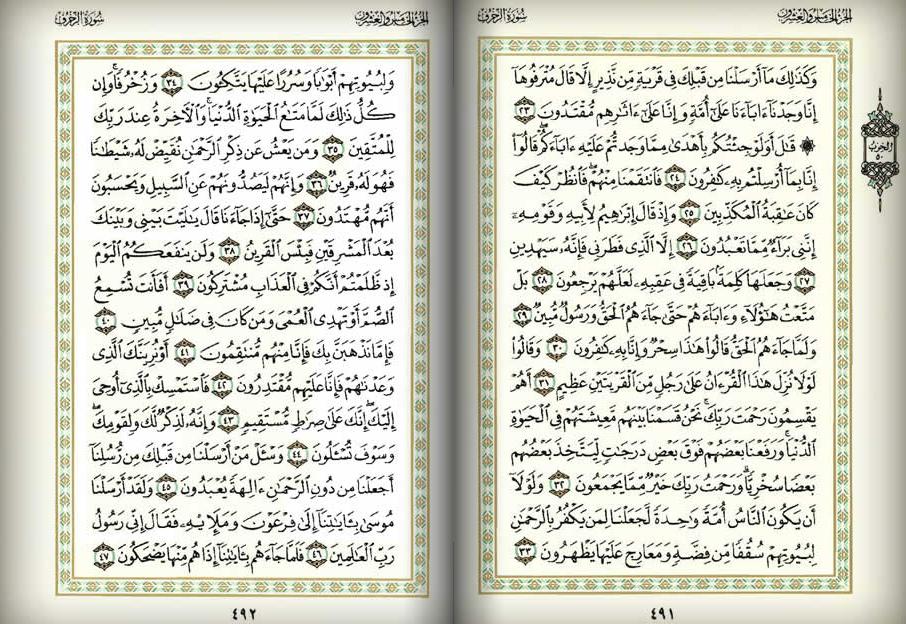 سُورَةُ الزُّخْرُفِ
الجُزْءُ الخَامِسُ وَالعِشْرُونَ
وَكَذَٰلِكَ مَآ أَرْسَلْنَا مِن قَبْلِكَ فِى قَرْيَةٍ مِّن نَّذِيرٍ إِلَّا قَالَ مُتْرَفُوهَآ
إِنَّا وَجَدْنَآ ءَابَآءَنَا عَلَىٰٓ أُمَّةٍ وَإِنَّا عَلَىٰٓ ءَاثَٰرِهِم مُّقْتَدُونَ ٢٣
۞ قَٰلَ أَوَلَوْ جِئْتُكُم بِأَهْدَىٰ مِمَّا وَجَدتُّمْ عَلَيْهِ ءَابَآءَكُمْ ۖ قَالُوٓا۟
إِنَّا بِمَآ أُرْسِلْتُم بِهِۦ كَٰفِرُونَ ٢٤ فَٱنتَقَمْنَا مِنْهُمْ ۖ فَٱنظُرْ كَيْفَ
كَانَ عَٰقِبَةُ ٱلْمُكَذِّبِينَ ٢٥ وَإِذْ قَالَ إِبْرَٰهِيمُ لِأَبِيهِ وَقَوْمِهِۦٓ
إِنَّنِى بَرَآءٌ مِّمَّا تَعْبُدُونَ ٢٦ إِلَّا ٱلَّذِى فَطَرَنِى فَإِنَّهُۥ سَيَهْدِينِ
٢٧ وَجَعَلَهَا كَلِمَةًۢ بَاقِيَةً فِى عَقِبِهِۦ لَعَلَّهُمْ يَرْجِعُونَ ٢٨ بَلْ
مَتَّعْتُ هَٰٓؤُلَآءِ وَءَابَآءَهُمْ حَتَّىٰ جَآءَهُمُ ٱلْحَقُّ وَرَسُولٌ مُّبِينٌ ٢٩
وَلَمَّا جَآءَهُمُ ٱلْحَقُّ قَالُوا۟ هَٰذَا سِحْرٌ وَإِنَّا بِهِۦ كَٰفِرُونَ ٣٠ وَقَالُوا۟
لَوْلَا نُزِّلَ هَٰذَا ٱلْقُرْءَانُ عَلَىٰ رَجُلٍ مِّنَ ٱلْقَرْيَتَيْنِ عَظِيمٍ ٣١ أَهُمْ
يَقْسِمُونَ رَحْمَتَ رَبِّكَ ۚ نَحْنُ قَسَمْنَا بَيْنَهُم مَّعِيشَتَهُمْ فِى ٱلْحَيَوٰةِ
ٱلدُّنْيَا ۚ وَرَفَعْنَا بَعْضَهُمْ فَوْقَ بَعْضٍ دَرَجَٰتٍ لِّيَتَّخِذَ بَعْضُهُم
بَعْضًا سُخْرِيًّا ۗ وَرَحْمَتُ رَبِّكَ خَيْرٌ مِّمَّا يَجْمَعُونَ ٣٢ وَلَوْلَآ
أَن يَكُونَ ٱلنَّاسُ أُمَّةً وَٰحِدَةً لَّجَعَلْنَا لِمَن يَكْفُرُ بِٱلرَّحْمَٰنِ
لِبُيُوتِهِمْ سُقُفًا مِّن فِضَّةٍ وَمَعَارِجَ عَلَيْهَا يَظْهَرُونَ ٣٣
الحِزْبُ
٥٠
٤٩١
سُورَةُ الزُّخْرُفِ
الجُزْءُ الخَامِسُ وَالعِشْرُونَ
وَلِبُيُوتِهِمْ أَبْوَٰبًا وَسُرُرًا عَلَيْهَا يَتَّكِـُٔونَ ٣٤ وَزُخْرُفًا ۚ وَإِن
كُلُّ ذَٰلِكَ لَمَّا مَتَٰعُ ٱلْحَيَوٰةِ ٱلدُّنْيَا ۚ وَٱلْءَاخِرَةُ عِندَ رَبِّكَ
لِلْمُتَّقِينَ ٣٥ وَمَن يَعْشُ عَن ذِكْرِ ٱلرَّحْمَٰنِ نُقَيِّضْ لَهُۥ شَيْطَٰنًا
فَهُوَ لَهُۥ قَرِينٌ ٣٦ وَإِنَّهُمْ لَيَصُدُّونَهُمْ عَنِ ٱلسَّبِيلِ وَيَحْسَبُونَ
أَنَّهُم مُّهْتَدُونَ ٣٧ حَتَّىٰٓ إِذَا جَآءَنَا قَالَ يَٰلَيْتَ بَيْنِى وَبَيْنَكَ
بُعْدَ ٱلْمَشْرِقَيْنِ فَبِئْسَ ٱلْقَرِينُ ٣٨ وَلَن يَنفَعَكُمُ ٱلْيَوْمَ
إِذ ظَّلَمْتُمْ أَنَّكُمْ فِى ٱلْعَذَابِ مُشْتَرِكُونَ ٣٩ أَفَأَنتَ تُسْمِعُ
ٱلصُّمَّ أَوْ تَهْدِى ٱلْعُمْىَ وَمَن كَانَ فِى ضَلَٰلٍ مُّبِينٍ ٤٠
فَإِمَّا نَذْهَبَنَّ بِكَ فَإِنَّا مِنْهُم مُّنتَقِمُونَ ٤١ أَوْ نُرِيَنَّكَ ٱلَّذِى
وَعَدْنَٰهُمْ فَإِنَّا عَلَيْهِم مُّقْتَدِرُونَ ٤٢ فَٱسْتَمْسِكْ بِٱلَّذِىٓ أُوحِىَ
إِلَيْكَ ۖ إِنَّكَ عَلَىٰ صِرَٰطٍ مُّسْتَقِيمٍ ٤٣ وَإِنَّهُۥ لَذِكْرٌ لَّكَ وَلِقَوْمِكَ ۖ
وَسَوْفَ تُسْـَٔلُونَ ٤٤ وَسْـَٔلْ مَنْ أَرْسَلْنَا مِن قَبْلِكَ مِن رُّسُلِنَآ
أَجَعَلْنَا مِن دُونِ ٱلرَّحْمَٰنِ ءَالِهَةً يُعْبَدُونَ ٤٥ وَلَقَدْ أَرْسَلْنَا
مُوسَىٰ بِـَٔايَٰتِنَآ إِلَىٰ فِرْعَوْنَ وَمَلَإِي۟هِۦ فَقَالَ إِنِّى رَسُولُ
رَبِّ ٱلْعَٰلَمِينَ ٤٦ فَلَمَّا جَآءَهُم بِـَٔايَٰتِنَآ إِذَا هُم مِّنْهَا يَضْحَكُونَ ٤٧
٤٩٢